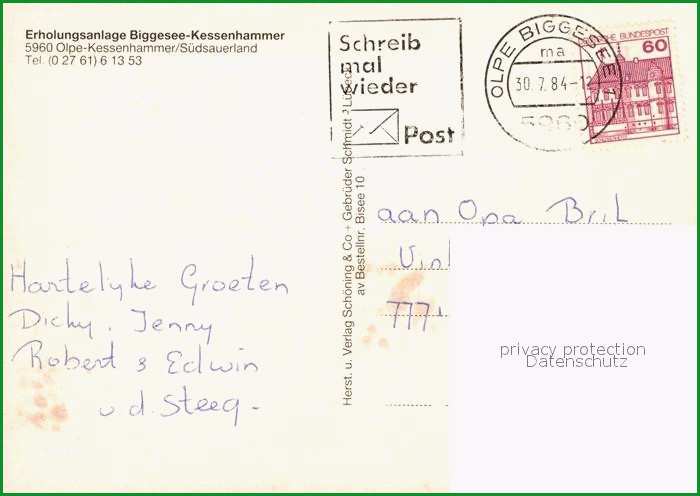 Erholungsanlage Biggesee-Kessenhammer
5960 Olpe-Kessenhammer/Südsauerland
Tel. (0 27 61) 6 13 53
Schreib
mal
wieder
Post
OLPE BIGGESEE 1
ma
30.7.84-12
5960
DEUTSCHE BUNDESPOST
60
Herst. u. Verlag Schöning & Co + Gebrüder Schmidt · Lübeck
av Bestellnr. Bisee 10
aan Opa Bril
777
Hartelyke Groeten
Dicky. Jenny
Robert & Edwin
v d. Steeg -
privacy protection
Datenschutz